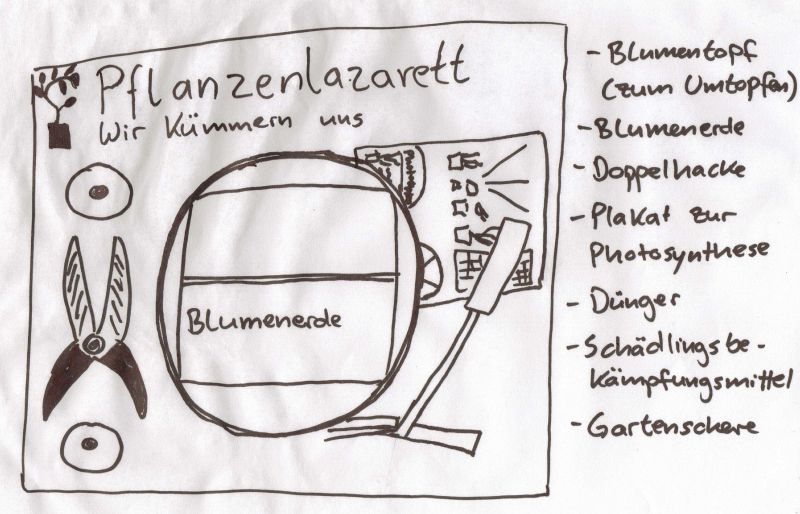 Pflanzenlazarett
Wir kümmern uns
Blumenerde
- Blumentopf
(zum Umtopfen)
- Blumenerde
- Doppelhacke
- Plakat zur
Photosynthese
- Dünger
- Schädlingsbe-
kämpfungsmittel
- Gartenschere